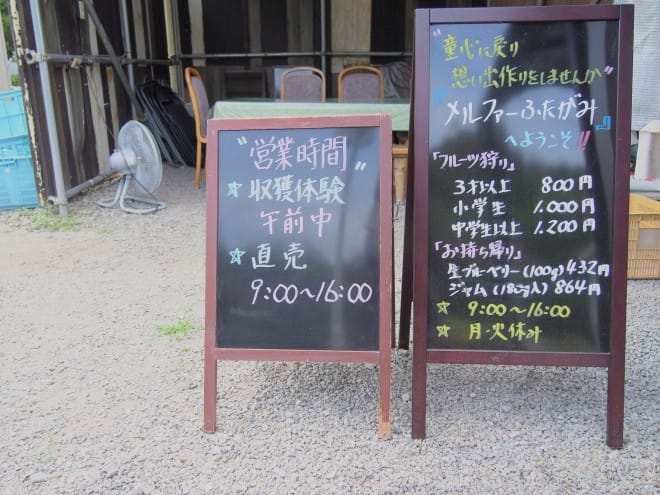 "営業時間"
☆ 収獲体験
午前中
☆ 直売
9:00〜16:00
"童心に戻り
想い出作りをしませんか"
『メルファーふたがみ』
へようこそ!!
「フルーツ狩り」
3才以上 800円
小学生 1.000円
中学生以上 1.200円
「お持ち帰り」
生ブルーベリー(100g)432円
ジャム(180g入)864円
☆ 9:00〜16:00
☆ 月・火休み